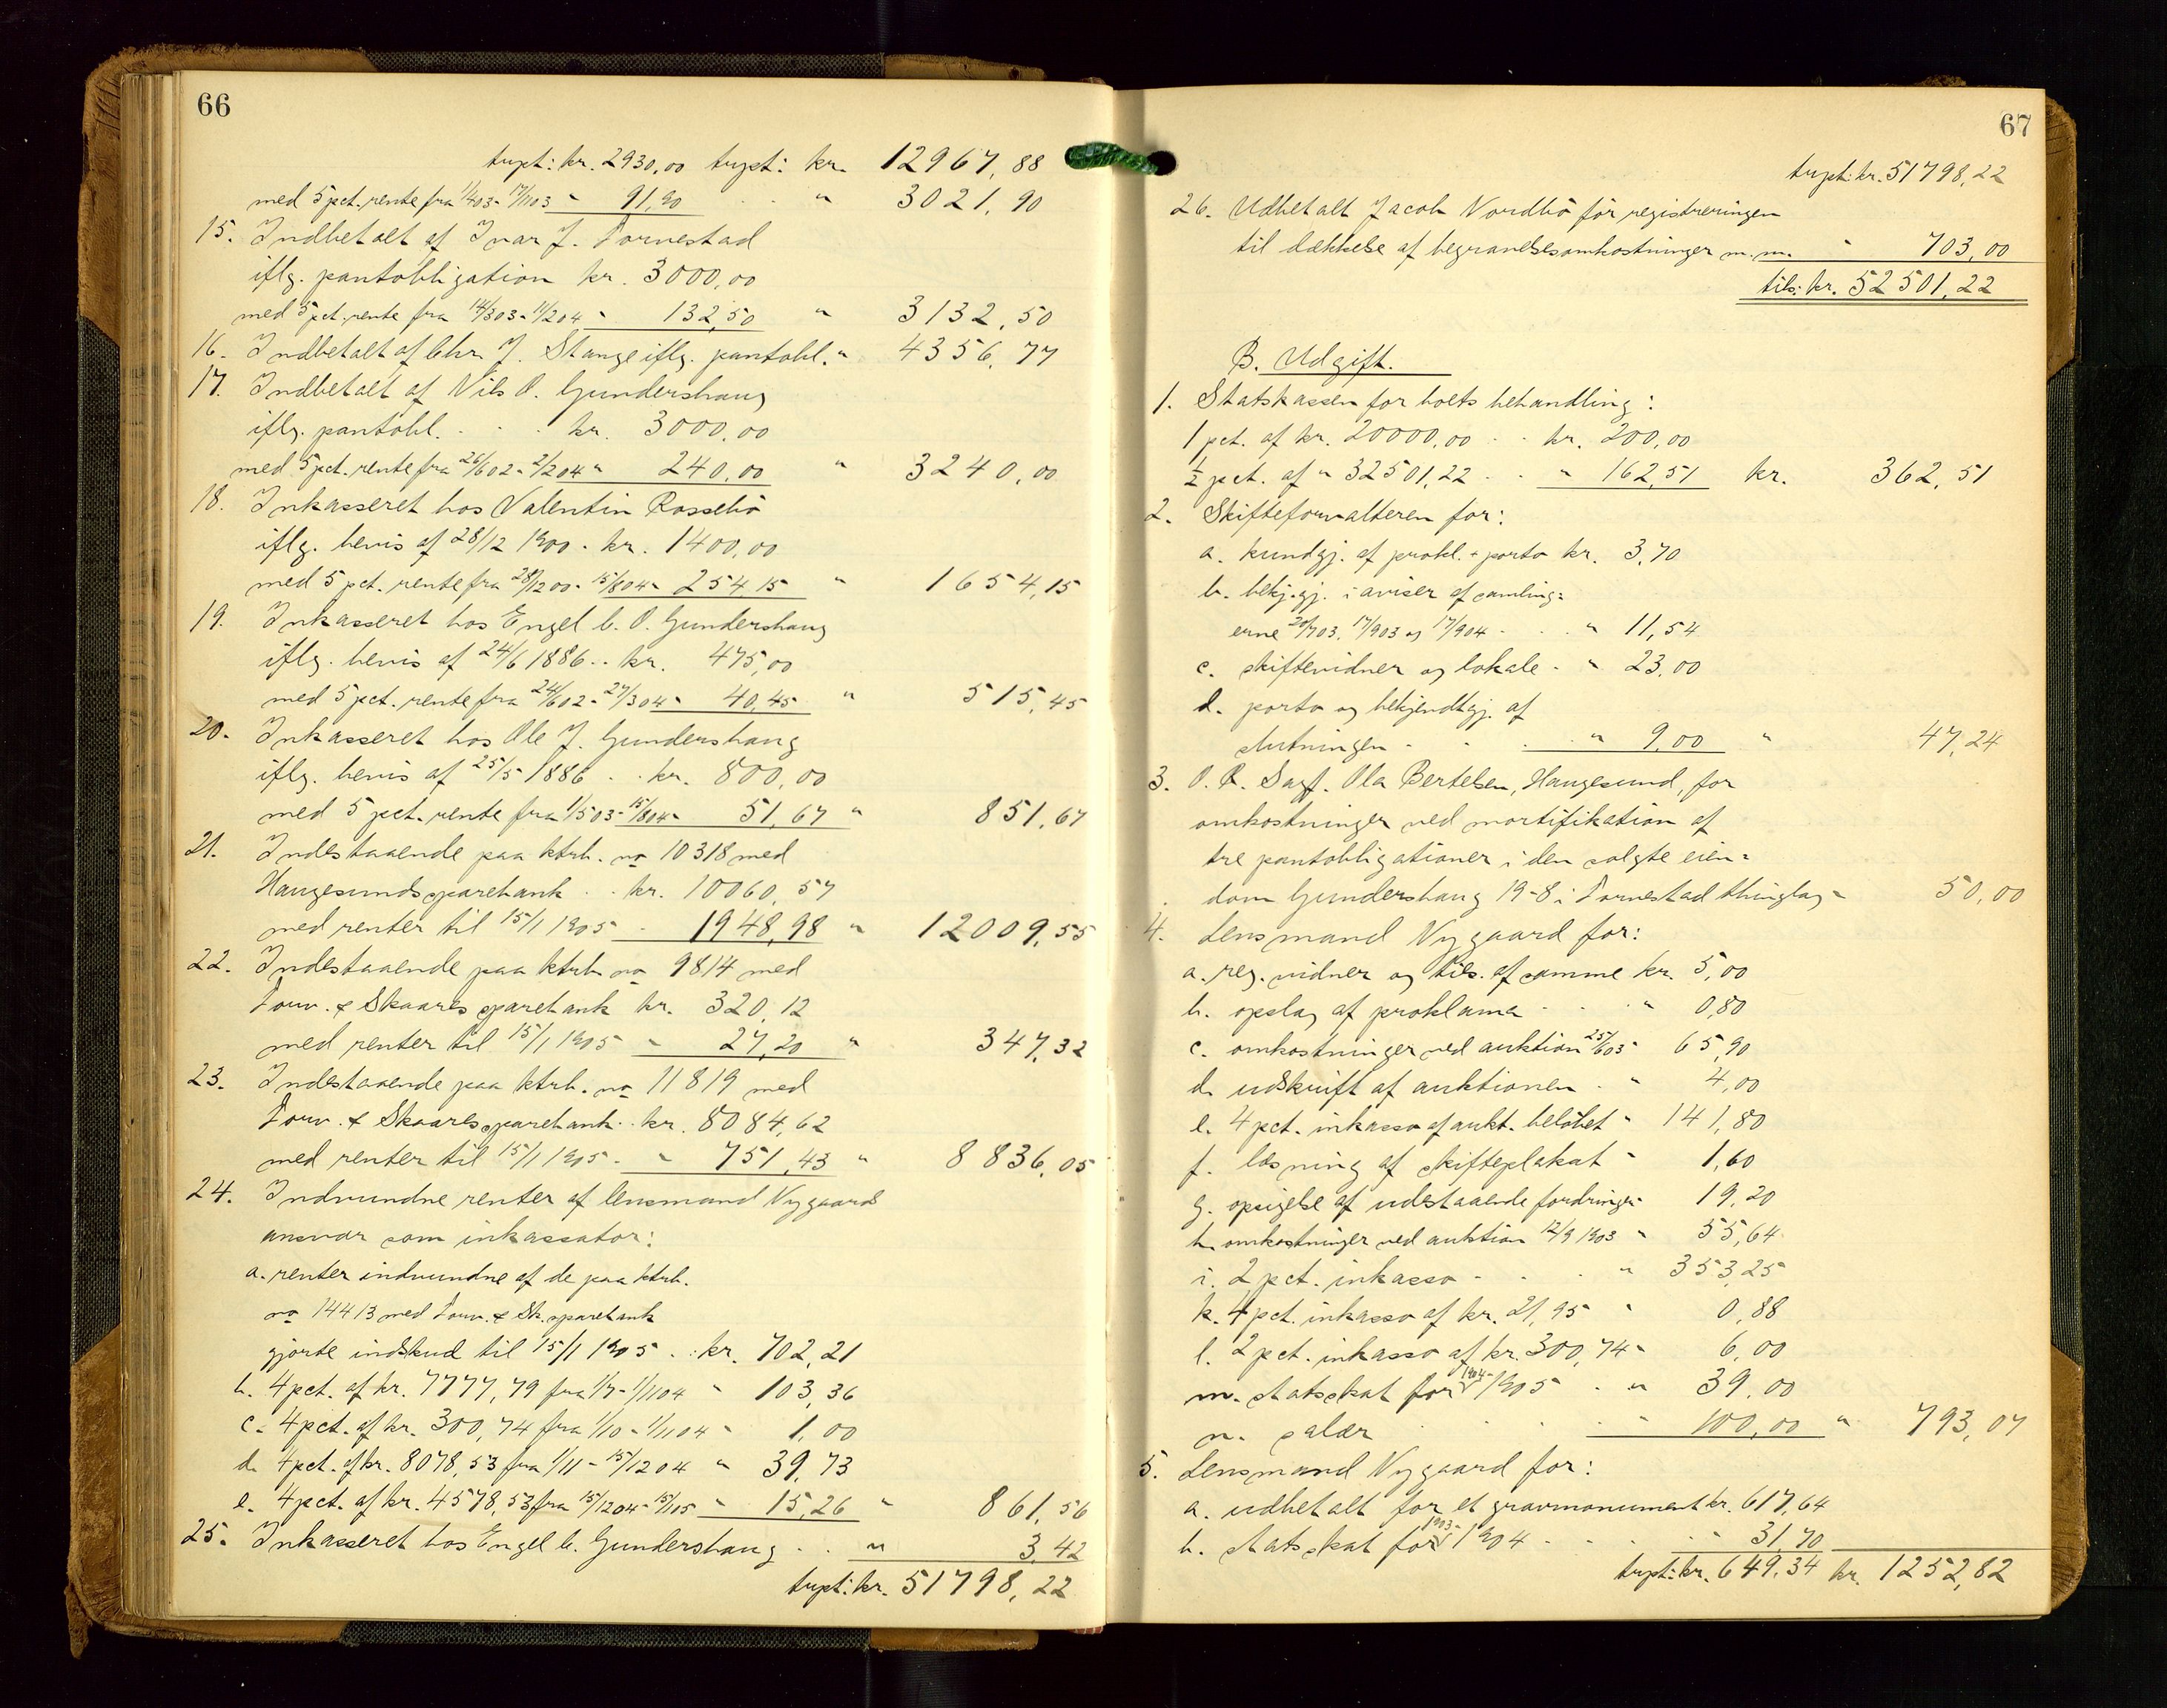 66
trspt: kr. 2930,00 trspt: kr. 12967,88
med 5 pct. rente fra 1/4 03 - 17/11 03 " 91,90 " 3021,90
15. Indbetalt af Ivar J. Tornestad
iflg. pantobligation kr. 3000,00
med 5 pct. rente fra 14/3 03 - 1/2 04 " 132,50 " 3132,50
16. Indbetalt af Chr. J. Stange iflg. pantobl. " 4356,77
17. Indbetalt af Nils O. Gundershaug
iflg. pantobl. . . . kr. 3000,00
med 5 pct. rente fra 26/6 02 - 2/2 04 " 240,00 " 3240,00
18. Inkasseret hos Valentin Rossebö
iflg. bevis af 28/12 1900 . kr. 1400,00
med 5 pct. rente fra 28/12 00 - 15/8 04 " 254,15 " 1654,15
19. Inkasseret hos Engel C. O. Gundershaug
iflg. bevis af 24/6 1886 . . kr. 475,00
med 5 pct. rente fra 24/6 02 - 27/3 04 " 40,45 " 515,45
20. Inkasseret hos Ole J. Gundershaug
iflg. bevis af 25/5 1886 . . kr. 800,00
med 5 pct. rente fra 1/5 03 - 15/8 04 " 51,67 " 851,67
21. Indestaaende paa ktrb. no 10318 med
Haugesunds sparebank . . kr. 10060,57
med renter til 15/1 1905 " 1948,98 " 12009,55
22. Indestaaende paa ktrb. no 9814 med
Torv. & Skaares sparebank kr. 320,12
med renter til 15/1 1905 " 27,20 " 347,32
23. Indestaaende paa ktrb. no 11819 med
Torv. & Skaares sparebank . . kr. 8084,62
med renter til 15/1 1905 . " 751,43 " 8836,05
24. Indvundne renter af lensmand Nygaards
ansvar som inkassator:
a. renter indvundne af de paa ktrb.
no 14413 med Torv. & Sk. sparebank
gjorte indskud til 15/1 1905 . . kr. 702,21
b. 4 pct. af kr. 7777,79 fra 1/7 - 1/11 04 " 103,36
c. 4 pct. af kr. 300,74 fra 1/10 - 1/11 04 " 1,00
d. 4 pct. af kr. 8078,53 fra 1/11 - 15/12 04 " 39,73
e. 4 pct. af kr. 4578,53 fra 15/12 04 - 15/1 05 " 15,26 " 861,56
25. Inkasseret hos Engel C. Gundershaug . . " 3,42
trspt: kr. 51798,22
67
trspt: kr. 51798,22
26. Udbetalt Jacob Nordbö för registreringen
til dækkelse af begravelsesomkostninger m.m. " 703,00
tils: kr. 52501,22
B. Udgift.
1. Statskassen for boets behandling:
1 pct. af kr. 20000,00 . . kr. 200,00
½ pct. af " 32501,22 . . " 162,51 kr. 362,51
2. Skifteforvalteren for:
a. kundgj. af prokl. + porto kr. 3,70
b. bekj.gj. i aviser af samling=
erne 20/7 03, 17/9 03 og 17/9 04 . . . " 11,54
c. skiftevidner og lokale . " 23,00
d. porto og bekjendtgj. af
slutningen . . . . " 9,00 " 47,24
3. O. R. Sagf. Ola Bertelsen, Haugesund, for
omkostninger ved mortifikation af
tre pantobligationer i den solgte eien=
dom Gundershaug 19-8 i Tornestad thinglag " 50,00
4. Lensmand Nygaard for:
a. reg. vidner og tils. af samme kr. 5,00
b. opslag af proklama . . . " 0,80
c. omkostninger ved auktion 25/6 03 " 65,90
d. udskrift af auktionen . " 4,00
e. 4 pct. inkasso af aukt. belöbet " 141,80
f. læsning af skifteplakat " 1,60
g. opsigelse af udestaaende fordringer " 19,20
h. omkostninger ved auktion 12/9 1903 " 55,64
i. 2 pct. inkasso . . . " 353,25
k. 4 pct. inkasso af kr. 21,95 " 0,88
l. 2 pct. inkasso af kr. 300,74 " 6,00
m. statsskat for 1904- 1905 . " 39,00
n. salær . . . " 100,00 " 793,07
5. Lensmand Nygaard for:
a. udbetalt for et gravmonument kr. 617,64
b. statsskat for 1903- 1904 . . . . " 31,70
trspt: kr. 649,34 kr. 1252,82